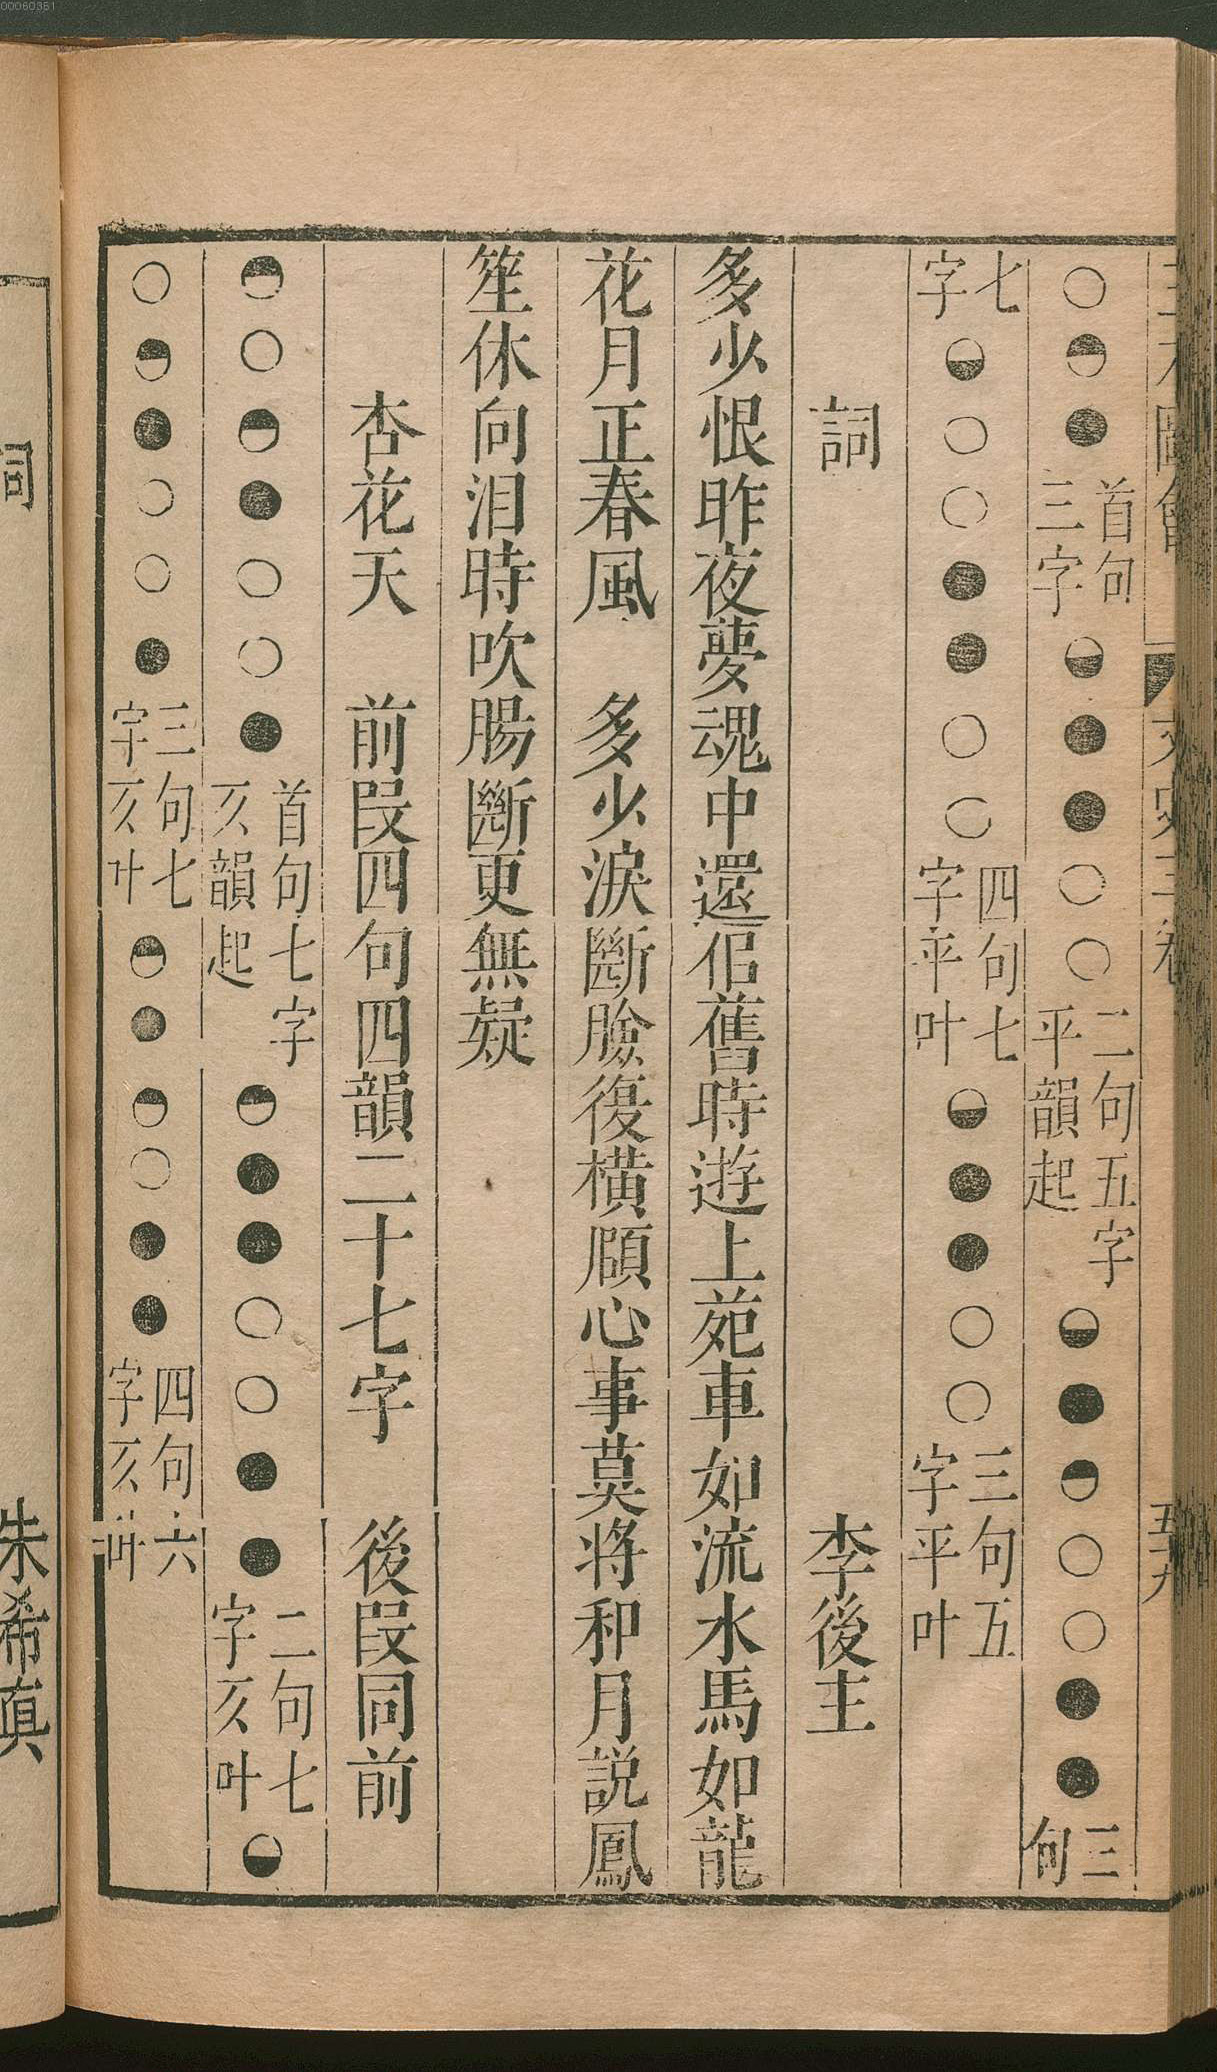 00060351
○◓●首句三字◒●●○○二句五字平韻起◒●◓○○●●三句
七字◒○○●●○○四句七字平叶◒●●○○三句五字平叶
詞 李後主
多少恨昨夜夢魂中還侣舊時遊上苑車如流水馬如龍
花月正春風 多少淚斷臉復橫頤心事莫将和月説鳳
笙休向泪時吹腸斷更無疑
杏花天 前段四句四韻二十七字 後段同前
◓○◓●○○●首句七字仄韻起◓●●○○●●二句七字仄叶◒
○◓●○○●三句七字仄叶◓●◓○●●四句六字仄叶
詞
朱希眞